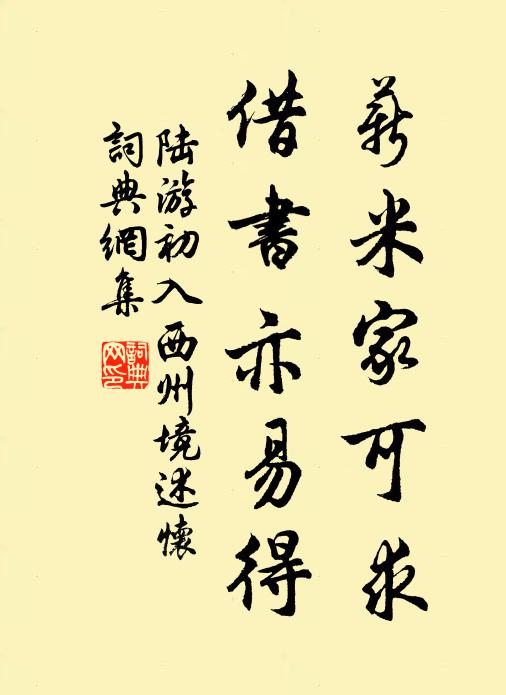 薪米家可求
借書亦易得
陆游初入西州境述懷
詞典網集
詞典网印